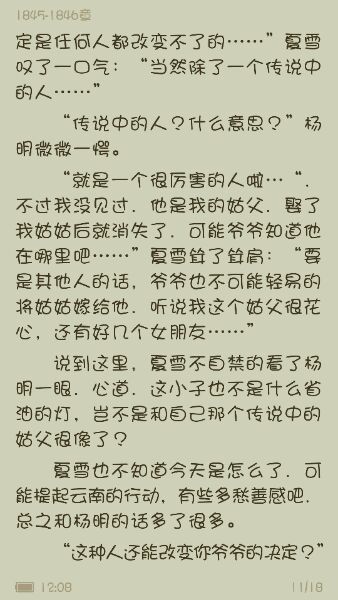 1845-1846章
定是任何人都改变不了的……”夏雪
叹了一口气：“当然除了一个传说中
的人……”
“传说中的人？什么意思？”杨
明微微一愕。
“就是一个很厉害的人啦…“．
不过我没见过．他是我的姑父．娶了
我姑姑后就消失了．可能爷爷知道他
在哪里吧……”夏雪耸了耸肩：“要
是其他人的话，爷爷也不可能轻易的
将姑姑嫁给他．听说我这个姑父很花
心，还有好几个女朋友……”
说到这里，夏雪不自禁的看了杨
明一眼．心道．这小子也不是什么省
油的灯，岂不是和自己那个传说中的
姑父很像了？
夏雪也不知道今天是怎么了．可
能提起云南的行动，有些多愁善感吧．
总之和杨明的话多了很多。
“这种人还能改变你爷爷的决定？”
12:08
11/18